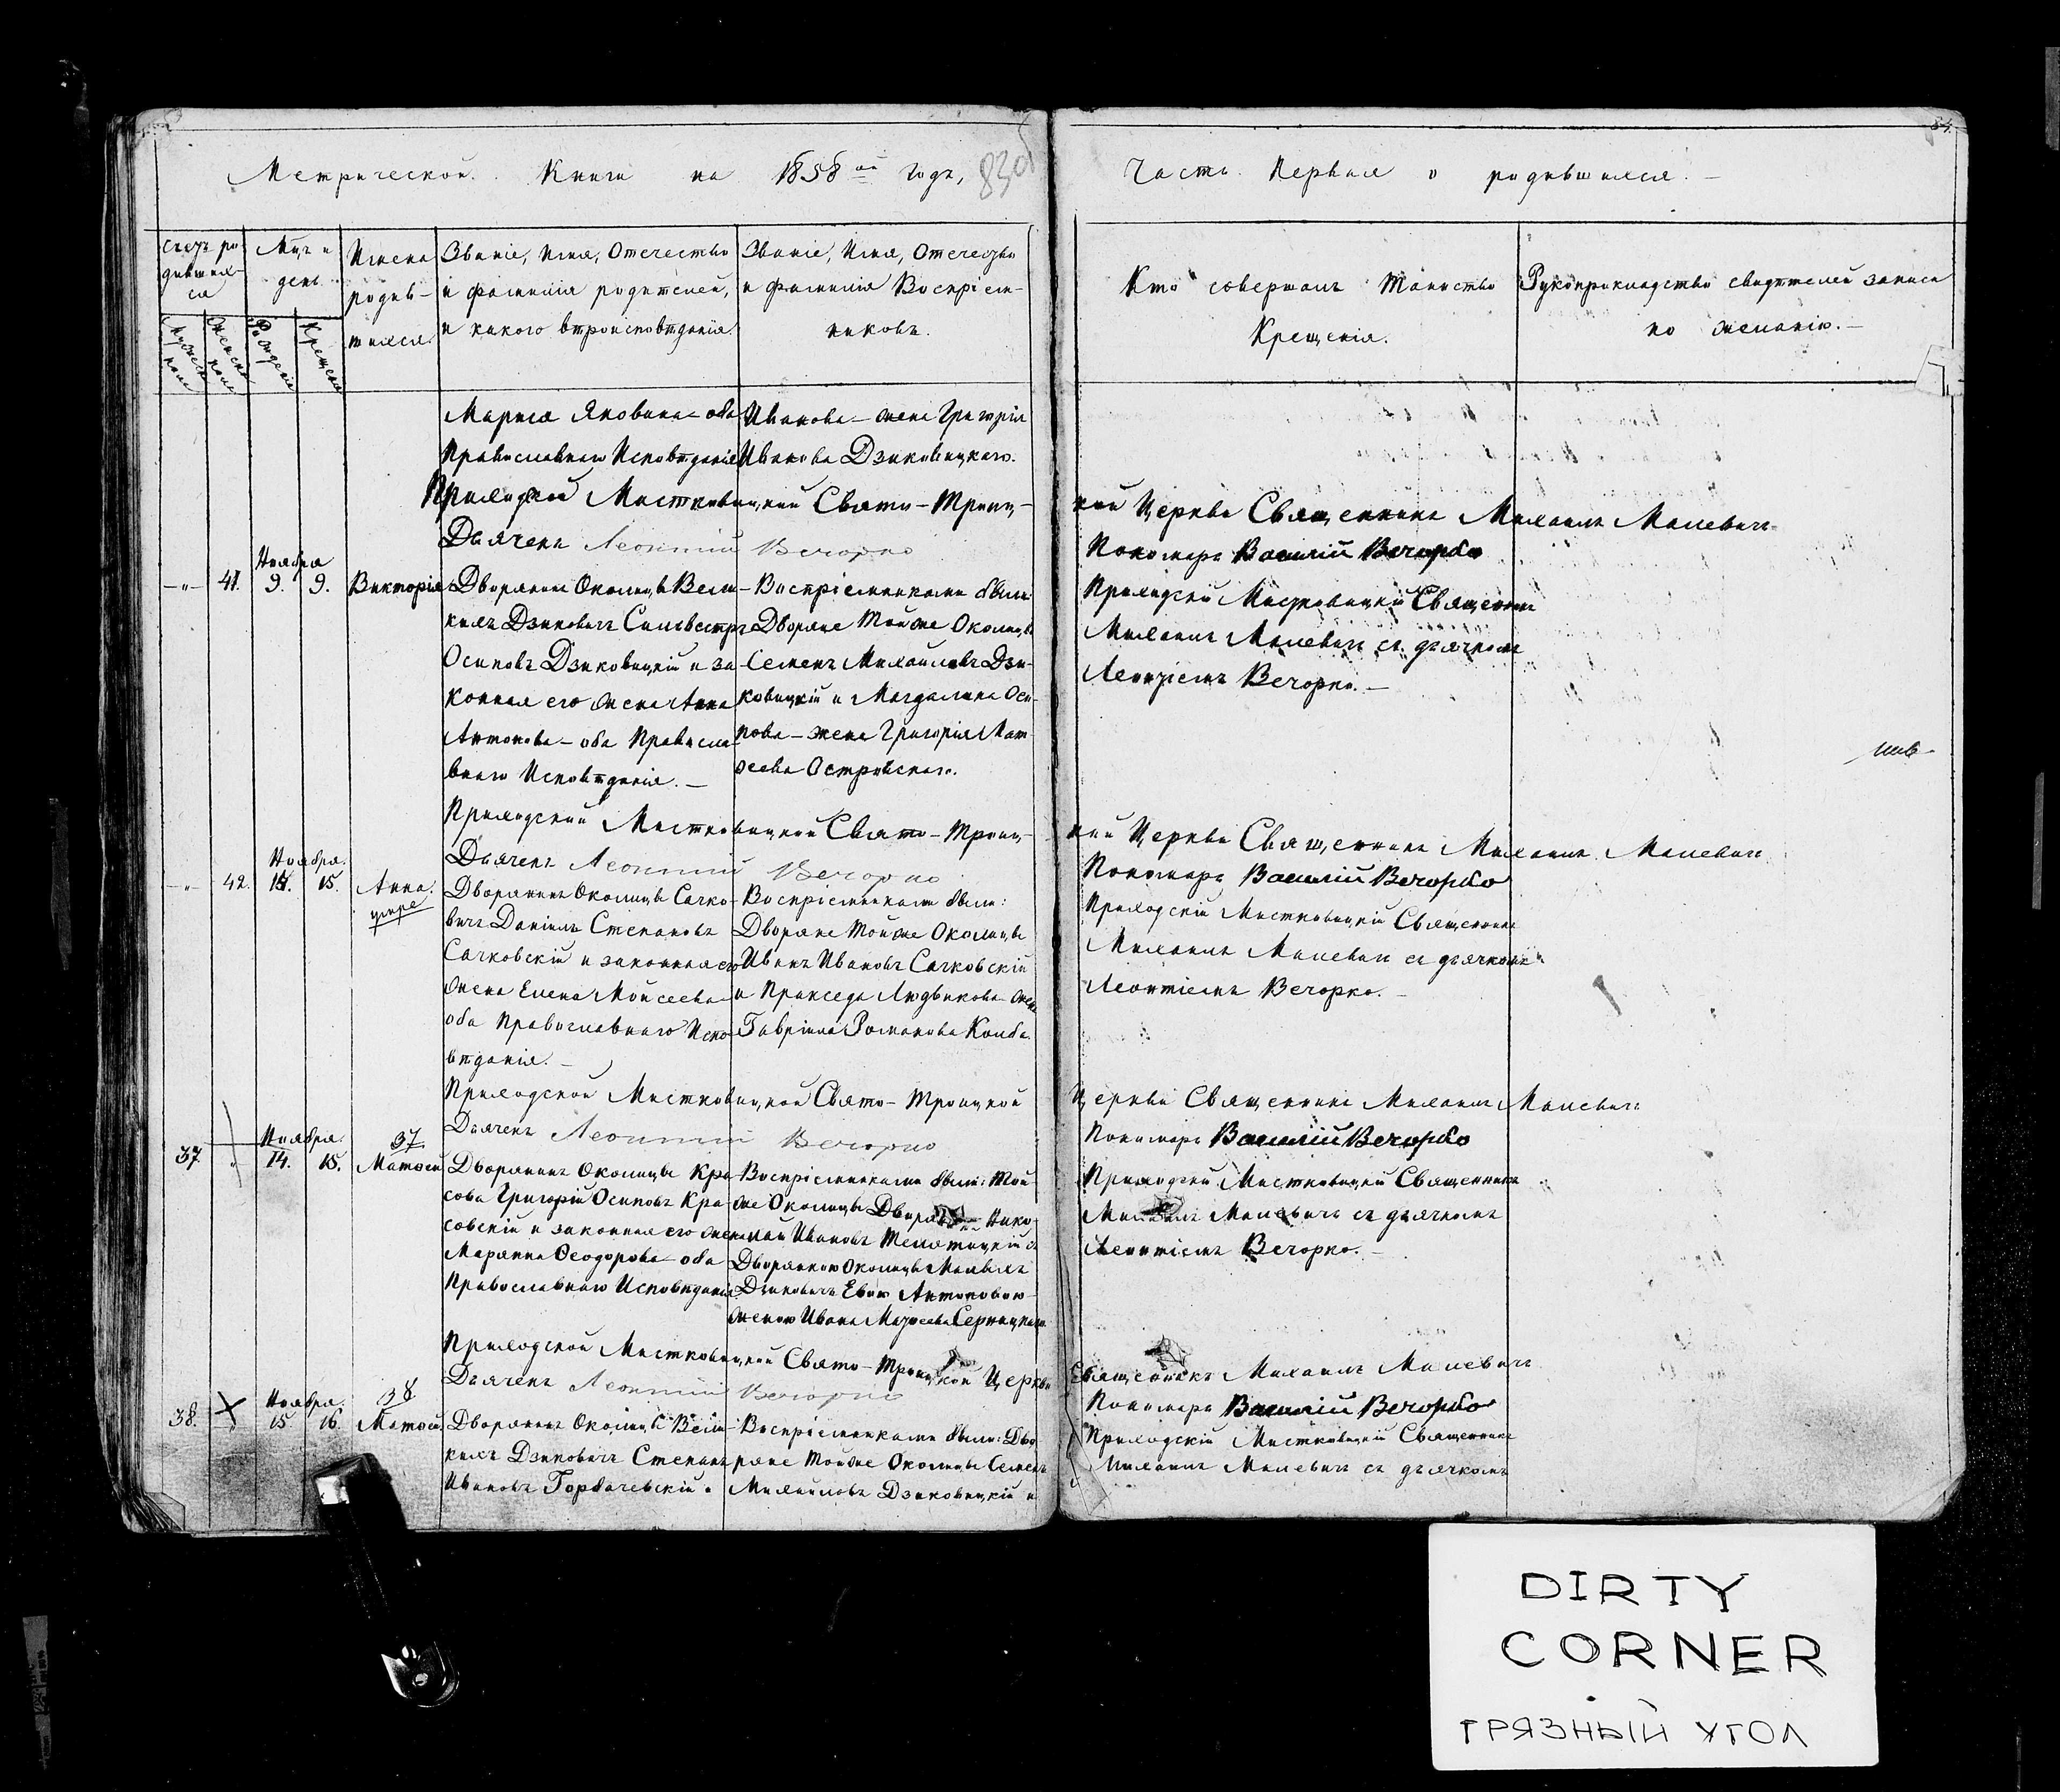 Метрической Книги на 1858ой годъ,
83об
Часть Первая о родившихся. –
84.
Счетъ ро-
дившихъ-
ся
Мужеска
пола
Женска
пола
Мѣс. и
день
Рожденія
Крещенія
Имена
родив-
шихся.
Званіе, Имя, Отечество
и фамилія родителей,
и какого вѣроисповѣданія.
Званіе, Имя, Отечество
и фамилія Воспріем-
никовъ.
Кто совершалъ Таинство
Крещенія.
Рукоприкладство свидѣтелей записи
по желанію. –
Марися Яковина – оба
Православнаго Исповѣданія
Иванова – жена Григорія
Иванова Дзиковицкаго.
Приходской Местковицкой Свято – Троиц-
кой Церкви Священникъ Михаилъ Малевичъ
Дьячекъ Леонтий Вечорко
Пономарь Василій Вечорко
Ноября
– " – 41. 9. 9. Викторія
Дворянинъ Околицы Вели-
кихъ Дзиковичъ Сильвестръ
Осиповъ Дзиковицкій и за-
конная его жена Анна
Антонова – оба Правосла-
внаго Исповѣданія. –
Воспріемниками были:
Дворяне Той же Околицы
Семенъ Михайловъ Дзи-
ковицкій и Магдалина Оси-
пова – жена Григорія Мат-
ѳеева Островскаго.
Приходскій Местковицкій Священникъ
Михаилъ Малевичъ съ дьячкомъ
Леонтіемъ Вечорко. –
Приходской Местковицкой Свято – Троиц-
кой Церкви Священникъ Михаилъ Малевичъ
Дьячекъ Леонтий Вечорко
Пономарь Василій Вечорко
Ноября.
– " – 42. 15. Анна.
умре
Дворянинъ Околицы Сачко-
вичъ Даніилъ Степановъ
Сачковскій и законная его
жена Елена Мойсеева
оба Православнаго Испо-
вѣданія. –
Воспріемниками были:
Дворяне Той же Околицы
Иванъ Ивановъ Сачковскій
и Пракседа Людвикова – жена
Гавріила Романова Колба.
Приходскій Местковицкій Священникъ
Михаилъ Малевичъ съ дьячкомъ
Леонтіемъ Вечорко. –
Приходской Местковицкой Свято – Троицкой
Церкви Священникъ Михаилъ Малевичъ
Дьячекъ Леонтий Вечорко
Пономарь Василій Вечорко
Ноября. 37
37 " 14. 15. Матѳей
Дворянинъ Околицы Кра-
сова Григорій Осиповъ Кра-
совскій и законная его жена
Марянна Ѳеодорова – оба
Православнаго Исповѣданія
Воспріемниками были: Той
же Околицы Нико-
лай Ивановъ съ
Дворянкою Околицы Малыхъ
Дзиковичъ Евою Антоновою
женою Ивана Матѳеева
Приходской Местковицкій Священникъ
Михаилъ Малевичъ съ дьячкомъ
Леонтіемъ Вечорко. –
Приходской Местковицкой Свято – Троицкой Церкви
Священникъ Михаилъ Малевичъ
Дьячекъ Леонтий Вечорко
Пономарь Василій Вечорко
Ноября. 38
38. " 15 16. Матѳей.
Дворянинъ Околицы Вели-
кихъ Дзиковичъ Степанъ
Ивановъ Горбачевскій и
Воспріемниками были: Дво
ряне Той же Околицы Семенъ
Михайловъ Дзиковицкій и
Приходскій Местковицкій Священникъ
Михаилъ Малевичъ съ дьячкомъ
DIRTY
CORNER
ГРЯЗНЫЙ УГОЛ